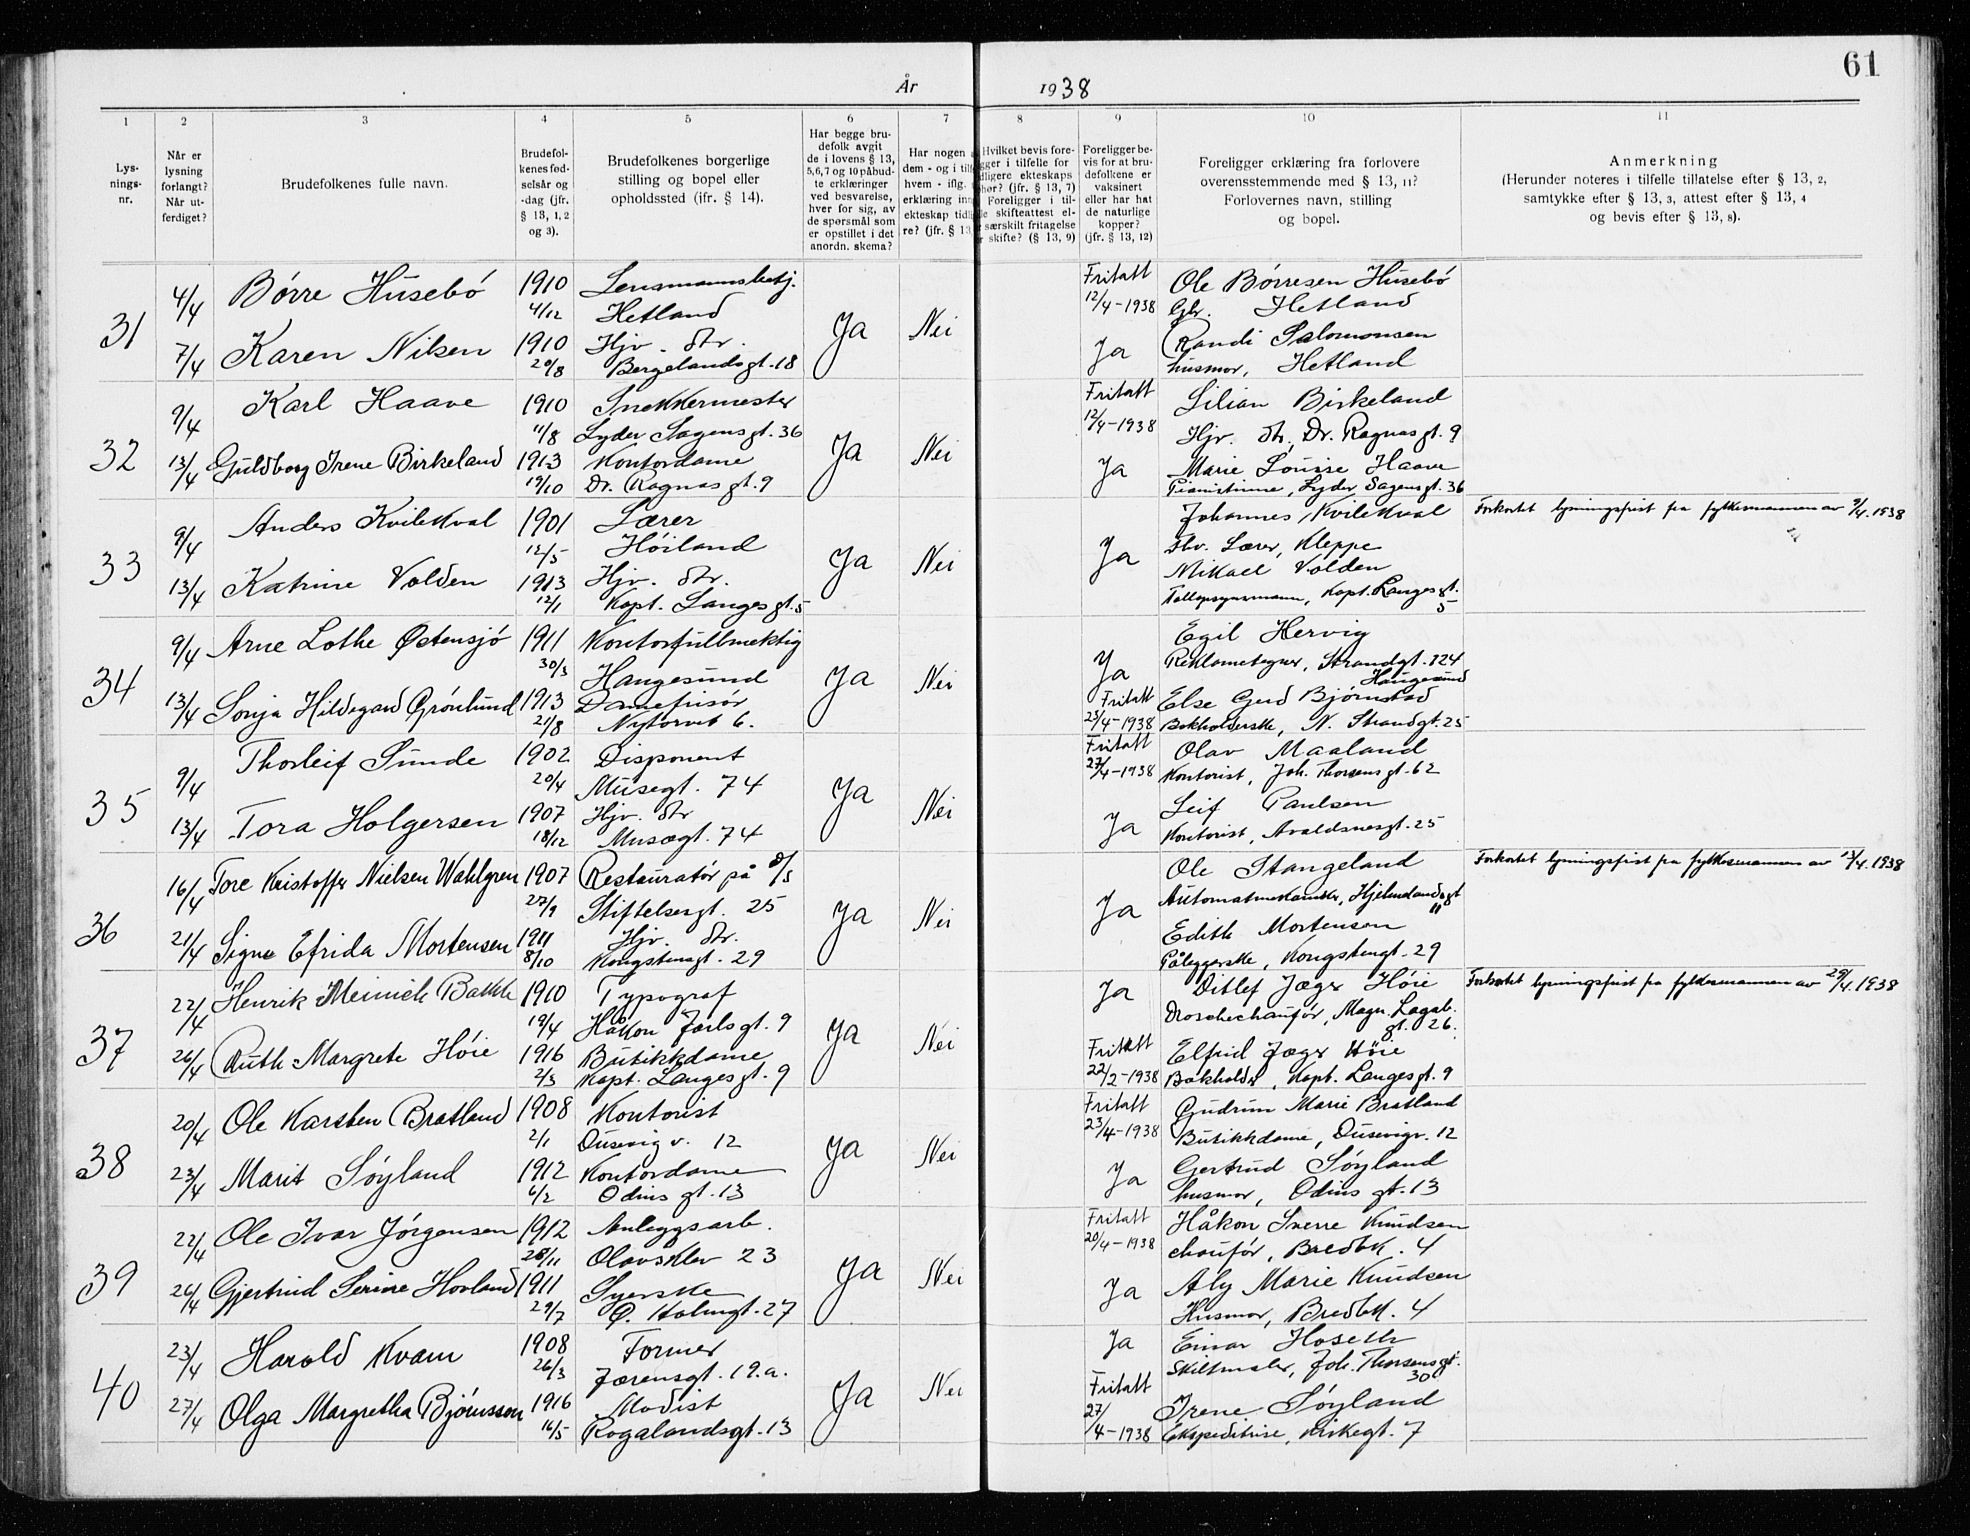 61
År 1938
1 2 3 4 5 6 7 8 9 10 11
Lys-
nings-
nr.
Når er
lysning
forlangt?
Når ut-
ferdiget?
Brudefolkenes fulle navn.
Brudefol-
kenes fød-
selsår og
-dag (jfr.
§ 13, 1, 2
og 3).
Brudefolkenes borgerlige
stilling og bopel eller
opholdssted (jfr. § 14).
Har begge bru-
defolk avgit
de i lovens § 13,
5,6,7 og 10 påbud-
te erklæringer
ved besvarelse,
hver for sig, av
de spørsmål som
er opstillet i det
anordn. skema?
Har nogen a
dem - og i tilf
hvem - iflg.
erklæring inn
ekteskap tidli
re? (jfr. § 13
Hvilket bevis fore-
gger i tilfelle for
dligere ekteskaps
phør? (jfr. § 13, 7)
Foreligger i til-
le skifteattest el-
særskilt fritagelse
r skifte? (§ 13, 9)
Foreligger be-
vis for at bru-
defolkene er
vaksinert
eller har hat
de naturlige
kopper?
(jfr. § 13, 12)
Foreligger erklæring fra forlovere
overensstemmende med § 13, 11?
Forlovernes navn, stilling
og bopel.
Anmerkning
(Herunder noteres i tilfelle tillatelse efter § 13, 2,
samtykke efter § 13, 3, attest efter § 13, 4
og bevis efter § 13, 8).
31
4/4 Børre Husebø 1910 Lensmannsbetj.
4/12 Hetland
7/4 Karen Nilsen 1910 Hjv. dtr.
20/8 Bergelandsgt. 18
Ja Nei
Fritatt
12/4-1938
Ja
Ole Børresen Husebø
Gbr. Hetland
Randi Salomonsen
husmor, Hetland
32
9/4 Karl Haave 1910 Snekkermester
11/8 Lyder Sagens gt. 36
13/4 Guldborg Irene Birkeland 1913 Kontordame
19/10 Dr. Ragnas gt. 9
Ja Nei
Fritatt
12/4-1938
Ja
Lilian Birkeland
Hjv. dtr. Dr. Ragnas gt. 9
Marie Louise Haave
Pianistinne, Lyder Sagens gt. 36
33
9/4 Anders Kvilekval 1901 Lærer
12/5 Høiland
13/4 Katrine Volden 1913 Hjv. dtr.
12/1 Kapt. Langes gt. 5
Ja Nei
Ja
Johannes Kvilekval
fhv. Lærer, Kleppe
Mikael Volden
Tollopsynsmann, Kapt. Langes gt.
5
Forkortet lysningsfrist fra fylkesmannen av 9/4.1938
34
9/4 Arne Lothe Østensjø 1911 Kontorfullmektig
30/3 Haugesund
13/4 Sonja Hildegard Grönlund 1913 Damefrisör
21/8 Nytorvet 6.
Ja Nei
Ja
Fritatt
23/4-1938
Egil Hervig
Reklametegner, Strandgt. 124
Haugesund
Else Gerd Bjørnstad
Bokholderske, N. Strandgt. 25
35
9/4 Thorleif Sunde 1902 Disponent
20/4 Musegt. 74
13/4 Tora Holgersen 1907 Hjv. dtr
18/12 Musegt. 74
Ja Nei
Fritatt
27/4-1938
Ja
Olav Maaland
Kontorist, Joh. Thorsens gt. 62
Leif Paulsen
Kontorist, Avaldsnesgt. 25
36
16/4 Tore Kristoffer Nielsen Wahlgren 1907 Restauratør på D/S
27/9 Stiftelsesgt. 25
21/4 Signe Efrida Mortensen 1911 Hjv. dtr.
8/10 Kongstensgt. 29
Ja Nei
Ja
Ole Stangeland
Automatmekaniker, Hjelmelandsgt
11
Edith Mortensen
Påleggerske, Kongstensgt. 29
Forkortet lysningsfrist fra fylkesmannen av 13/4.1938
37
22/4 Henrik Meinich Bakke 1910 Typograf
19/4 Håkon Jarls gt. 9
26/4 Ruth Margrete Høie 1916 Butikkdame
2/3 Kapt. Langes gt. 9
Ja Nei
Ja
Fritatt
22/2-1938
Ditlef Jæger Høie
Droschechaufør, Magn. Lagab.
gt. 26.
Elfrid Jæger Høie
Bokholder, Kapt. Langes gt. 9
Forkortet lysningsfrist fra fylkesmannen av 29/4.1938
38
20/4 Ole Karsten Bratland 1908 Kontorist
2/1 Dusevig v. 12
23/4 Marit Søyland 1912 Kontordame
6/2 Odins gt. 13
Ja Nei
Fritatt
23/4-1938
Ja
Gudrun Marie Bratland
Butikkdame, Dusevigv. 12
Gertrud Søyland
husmor, Odins gt. 13
39
22/4 Ole Ivar Jørgensen 1912 Anleggsarb.
28/11 Olavsklev 23
26/4 Gjertrud Serine Hovland 1911 Syerske
29/7 Ø. Holmgt. 27
Ja Nei
Fritatt
20/4-1938
Ja
Håkon Sverre Knudsen
chaufør, Bredbk. 4
Aly Marie Knudsen
Husmor, Bredbk. 4
40
23/4 Harald Kvam 1908 Former
26/3 Jærensgt. 19.a.
27/4 Olga Margretha Bjørnsson 1916 Modist
16/5 Rogalandsgt. 13
Ja Nei
Ja
Fritatt
27/4-1938
Einar Hoseth
Skiltmaler, Joh. Thorsens gt.
30
Irene Søyland
Ekspeditrise, Kirkegt. 7